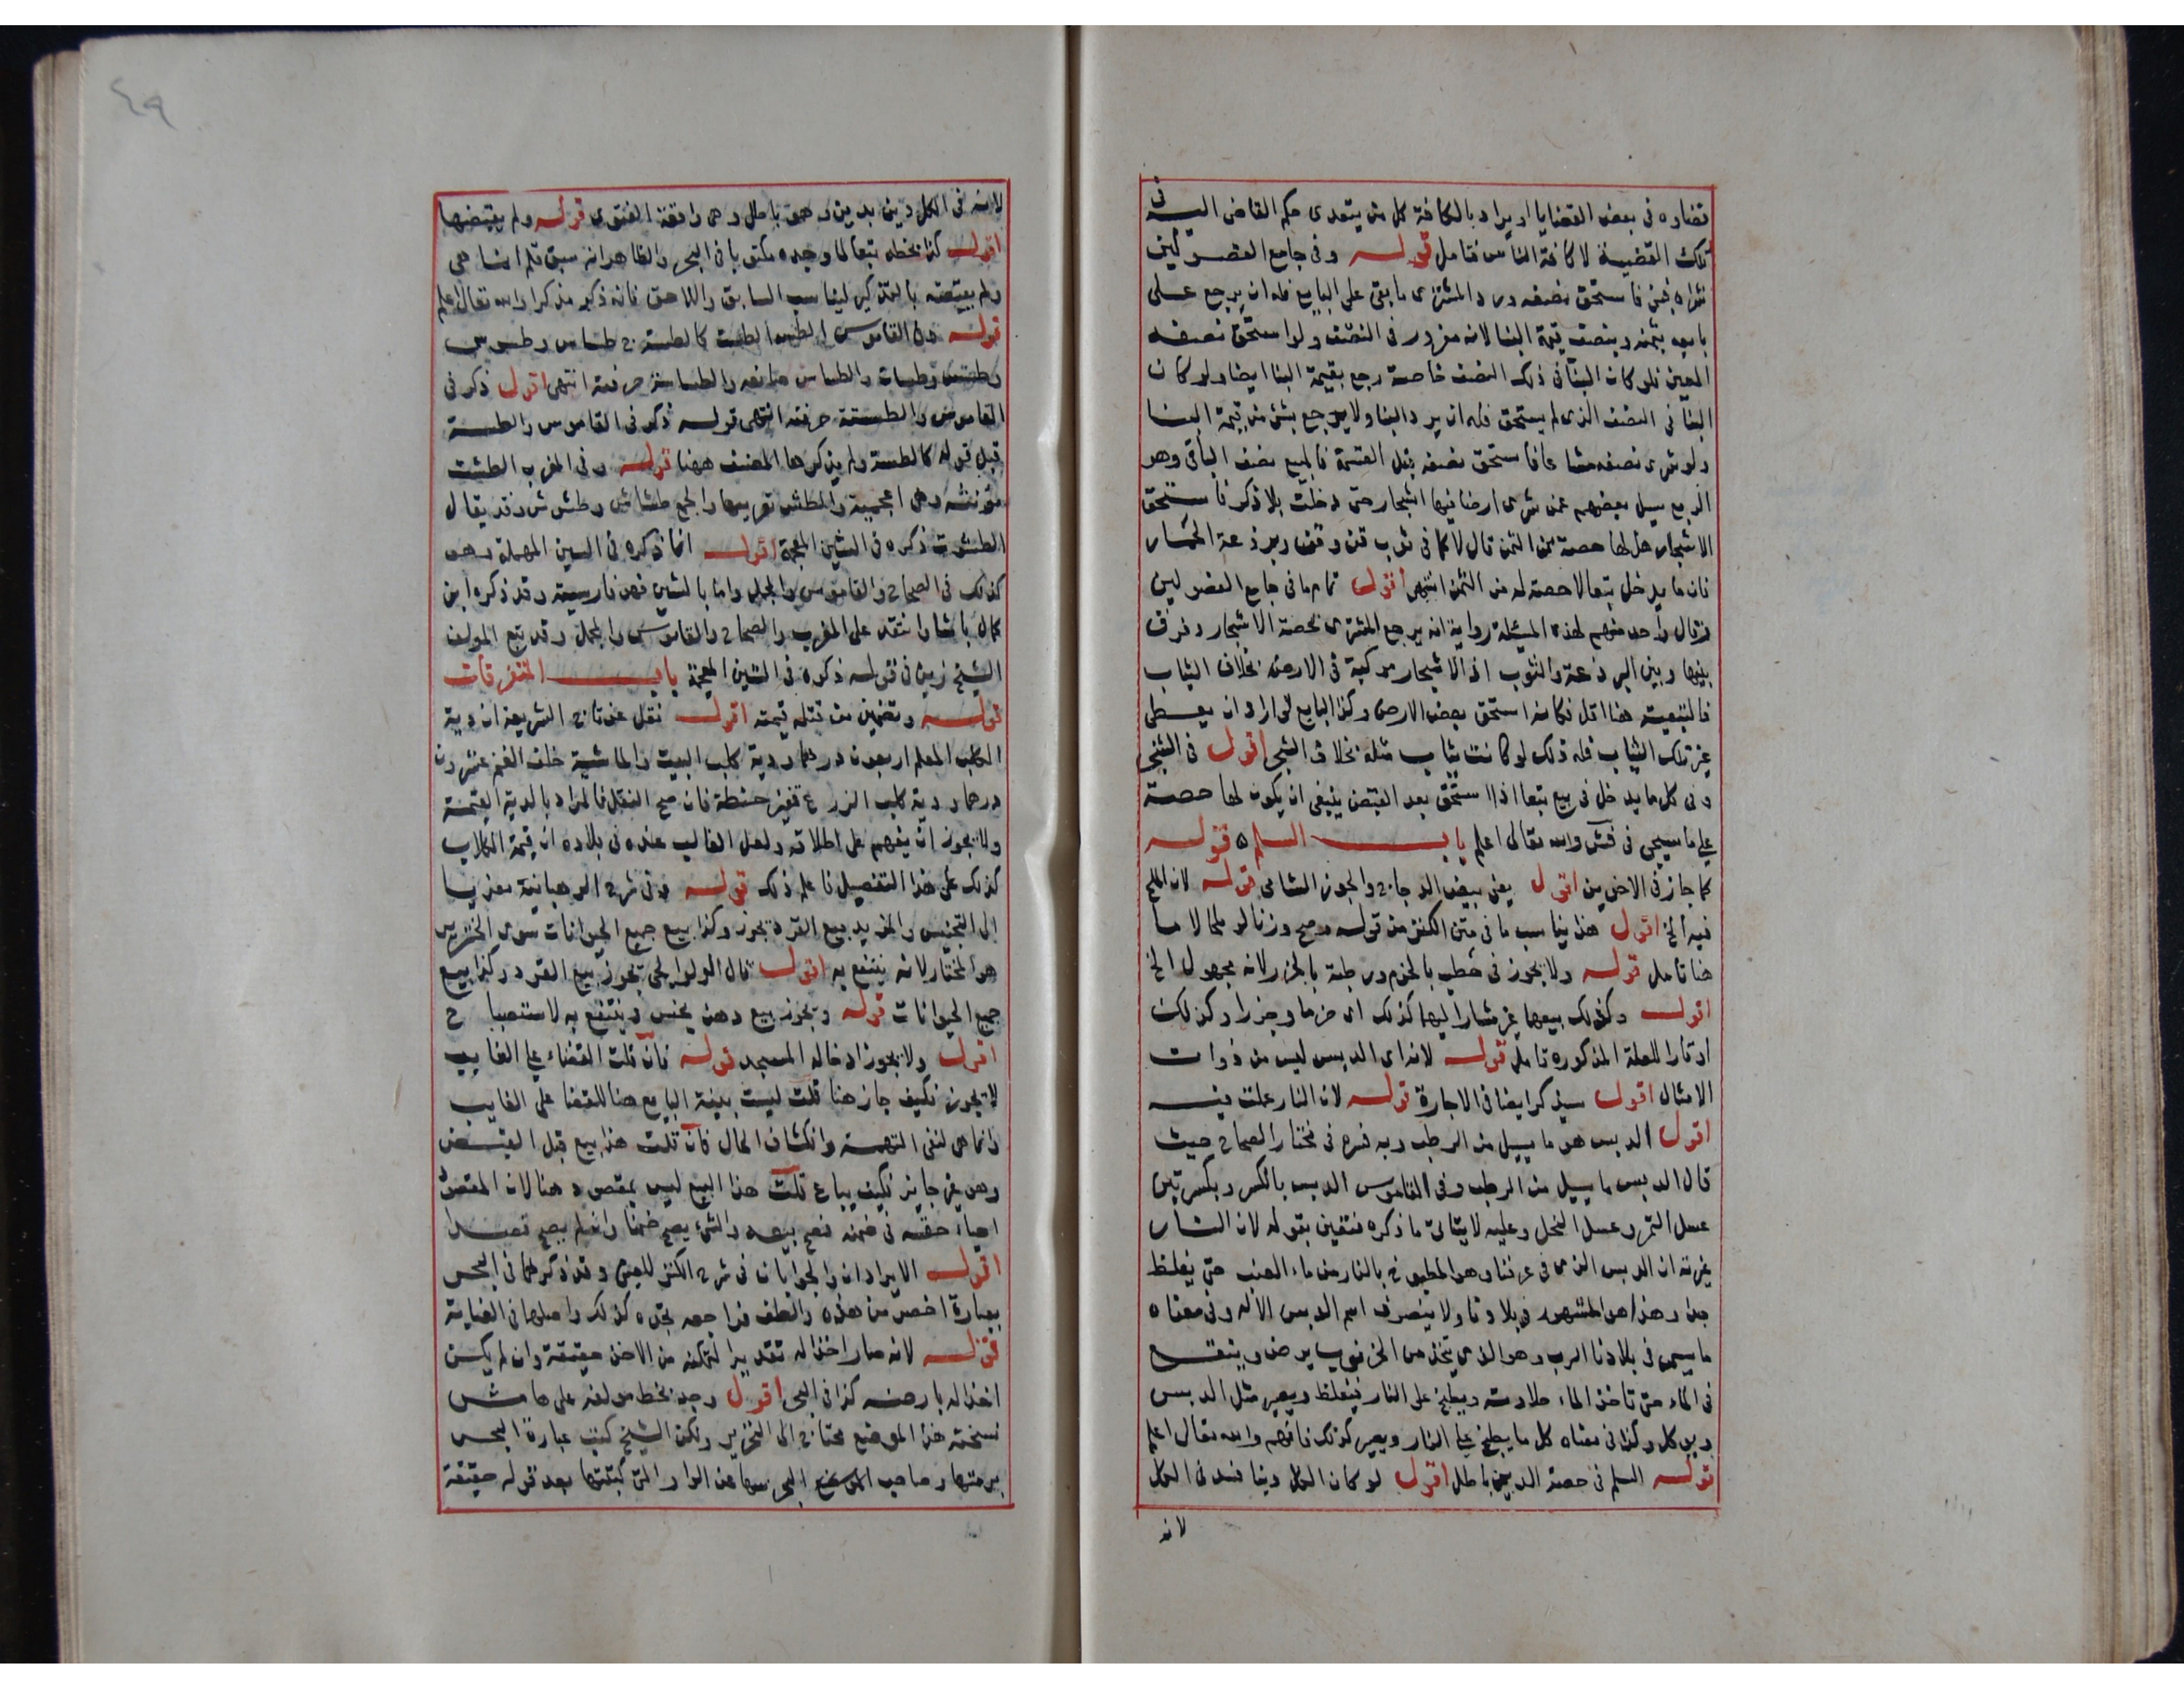 قضاؤه فى بعض القضايا او يراد بالكافة كل من يتعدى حكم القاضى اليه فى
تلك القضية لا كافة الناس فتامل قوله وفى جامع الفصولين
شراه فبنى فاستحق نصفه ورد المشترى ما بقى على البايع فله ان يرجع على
بايعه بثمنه وبنصف قيمة البنا لانه مغرور فى النصف ولو استحق نصفه
المعين فلو كان البنا فى ذلك النصف خاصة رجع بقيمة البنا ايضا ولو كان
البنا فى النصف الذى لم يستحق فله ان يرد البنا ولا يرجع بشئ من قيمة البنا
ولو شرى نصفه مشاعا فاستحق نصفه قبل القسمة فالمبيع نصف الباقى وهو
الربع سيل بعضهم عمن شرى ارضا فيها اشجار حتى دخلت بلا ذكر فاستحق
الاشجار هل لها حصة من الثمن قال لا كما فى ثوب قن وقن وبرذعة الحمار
فان ما يدخل تبعا لا حصة له من الثمن انتهى اقول تمام ما فى جامع الفصولين
وقال واحد منهم لهذه المسئلة رواية انه يرجع المشترى بحصة الاشجار وفرق
بينها وبين البرذعة والثوب اذ الاشجار مركبة فى الارض بخلاف الثياب
فالتبعية هنا اقل فكانه استحق بعض الارض وكذا البايع لو اراد ان يعطى
غير تلك الثياب فله ذلك لو كانت ثياب مثله بخلاف الشجر اقول فى الشجر
وفى كل ما يدخل فى بيع تبعا اذا استحق بعد القبض ينبغى ان يكون لها حصة
على ما سيجى فى فش والله تعالى اعلم باب السلم قوله
كما جاز فى الاخرين اقول يعنى بيض الدجاج والجوز الشامى قوله لان الملح
فيه الخ اقول هذا يناسب ما فى متن الكنز من قوله وصح وزنا لو ملحا لا ما
هنا تامل قوله ولا يجوز فى حطب بالحزم ورطبة بالجزر لانه مجهول الخ
اقول وكذلك بيعهما غير مشار اليهما كذلك اى حزما وجزرا وكذلك
اوقارا للعلة المذكورة تامل قوله لانه اى الدبس ليس من ذوات
الامثال اقول سيذكر ايضا فى الاجارة قوله لان النار عملت فيه
اقول الدبس هو ما يسيل من الرطب وبه فسره فى مختار الصحاح حيث
قال الدبس ما يسيل من الرطب وفى القاموس الدبس بالكسر وبكسرتين
عسل التمر وعسل النحل وعليه لا يتاتى ما ذكره بقوله لان النار
غيرته ان الدبس الذى فى عرفنا وهو المطبوخ بالنار من ماء العنب حتى يغلظ
جدا وهذا هو المشهور فى بلادنا ولا ينصرف اسم الدبس الا له وفى معناه
ما يسمى فى بلادنا الرب وهو الذى يتخذ من الخرنوب يرض وينقع
فى الماء حتى تاخذ الماء حلاوته ويطبخ على النار فيغلظ ويصير مثل الدبس
وبوكل وكذا فى معناه كل ما يطبخ على النار ويصير كذلك فافهم والله تعالى اعلم
قوله السلم فى حصة الدين باطل اقول لو كان الكل دينا فسد فى الكل
لانه
٤٩
لانه فى الكل دين بدين وهو باطل وهى واقعة الفتوى قوله ولم يقبضها
اقول كذا بخطه تبعا لما وجده مكتوبا فى البحر والظاهر انه سبق قلم انما هى
ولم يقبضه بالتذكير ليناسب السابق واللاحق فانه ذكره مذكرا والله تعالى اعلم
قوله وفى القاموس الطس الطست كالطسة ج طساس وطسوس
وطسيس وطسات والطساس صانعه والطساسة حرفته انتهى اقول ذكر فى
القاموس والطسة حرفته انتهى قوله ذكر فى القاموس والطسة
قبل قوله كالطسة ولم يذكرها المصنف ههنا قوله وفى المغرب الطشت
مؤنثة وهى اعجمية والطش تعريبها والجمع طشاش وطشش وقد يقال
الطشوت ذكره فى الشين المعجمة اقول انما ذكره فى السين المهملة وهو
كذلك فى الصحاح والقاموس والمجمل واما بالشين فهو فارسية وقد ذكره ابن
كمال باشا وانتقد على المغرب والصحاح والقاموس والمجمل وقد تبع المولف
الشيخ زين فى قوله ذكره فى الشين المعجمة باب المتفرقات
قوله وتضمين من قتله قيمته اقول نقل عن تاج الشريعة ان دية
الكلب المعلم اربعون درهما ودية كلب البيت والماشية خلف الغنم عشرون
درهما ودية كلب الزرع قفيز حنطة فان صح النقل فالمراد بالدية القيمة
ولا يجوز ان يفهم على اطلاقه ولعل الغالب عنده فى بلاده ان قيمة الكلاب
كذلك على هذا التفصيل فاعلم ذلك قوله وفى شرح الوهبانية معزيا
الى التجنيس والمزيد بيع القرد يجوز وكذا بيع جميع الحيوانات سوى الخنزير
هو المختار لانه ينتفع به اقول قال الولوالجى يجوز بيع القرد وكذا بيع
جميع الحيوانات قوله ويجوز بيع دهن نجس وينتفع به لاستصباح
اقول ولا يجوز ادخاله المسجد قوله فان قلت القضاء على الغايب
لا يجوز فكيف جاز هنا قلت ليست بينة البايع هنا للقضا على الغايب
وانما هى لنفى التهمة وانكشاف الحال فان قلت هذا بيع قبل القبض
وهو غير جايز فكيف يباع قلت هذا البيع ليس بمقصود هنا لان المقصود
احياء حقه فى ضمنه فصح بيعه والشئ يصح ضمنا وان لم يصح قصدا
اقول الايرادان والجوابان فى شرح الكنز للعينى وقد ذكرهما فى البحر
بعبارة اخصر من هذه والطف فراجعه تجده كذلك واصلها فى العناية
قوله لانه صار اخذا له تقديرا لتمكنه من الاخذ حقيقة وان لم يكن
اخذا له بارضه كذا فى البحر اقول وجد بخط مولفه على هامش
نسخته هذا الموضع محتاج الى التحرير ولكن الشيخ كتب عبارة البحر
برمتها وصاحب البحر سها عن الواو التى كتبتها بعد قوله حقيقة